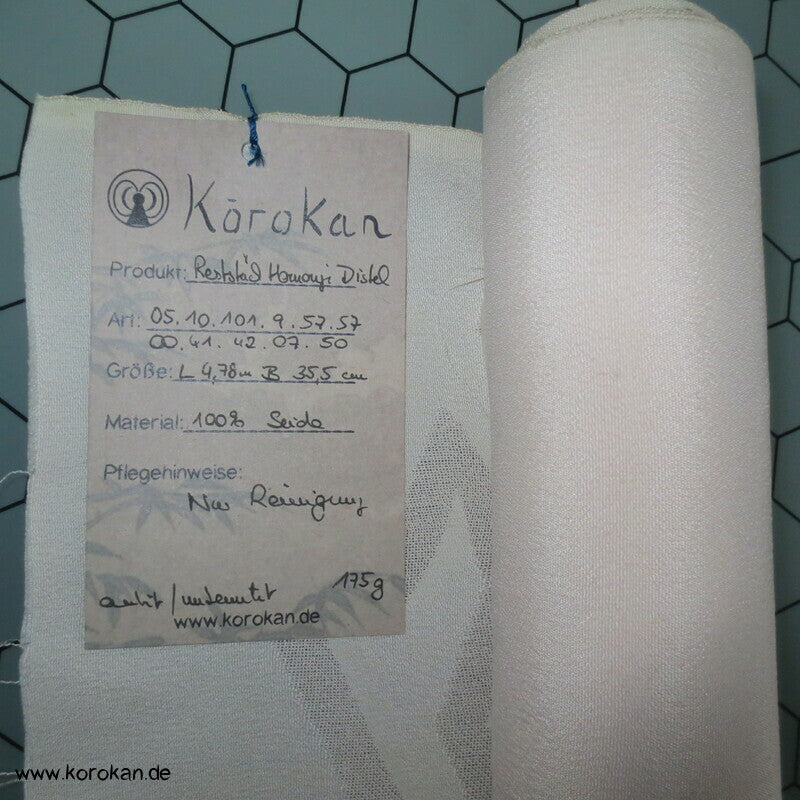 Kōrokan
Produkt: Reststück Hamonji Distel
Art: 05.10.101.9.57.57
00.41.42.07.50
Größe: L 4,78m B 35,5 cm
Material: 100% Seide
Pflegehinweise:
Nur Reinigung
175g
www.korokan.de
www.korokan.de